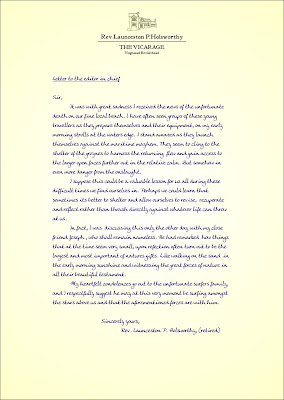 Rev Launceston P. Holsworthy
THE VICARAGE
Letter to the editor in chief
Sir,
It was with great sadness I received the news of the unfortunate
death on our fine local beach. I have often seen groups of these young
travellers as they prepare themselves and their equipment, on my early
morning strolls at the waters edge. I stand amazed as they launch
themselves against the maritime mayhem. They seem to cling to the
shelter of the groynes to harness the returning flow and gain access to
the larger open faces further out in the relative calm. But somehow in
even more danger from the onslaught.
I suppose this could be a valuable lesson for us all during these
difficult times we find ourselves in. Perhaps we could learn that
sometimes its better to shelter and allow ourselves to revise, recuperate
and reflect rather than thrash directly against whatever life can throw
at us.
In fact, I was discussing this only the other day with my close
friend Joseph, who shall remain nameless. He had remarked how things
that at the time seem very small, upon reflection often turn out to be the
largest and most important of natures gifts. Like walking on the sand in
the early morning sunshine and witnessing the great forces of nature in
all their beautiful testament.
My heartfelt condolences go out to the unfortunate surfers family,
and I respectfully suggest he may at this very moment be surfing amongst
the stars above us and that the aforementioned forces are with him.
Sincerely yours,
Rev. Launceston P. Holsworthy (retired)